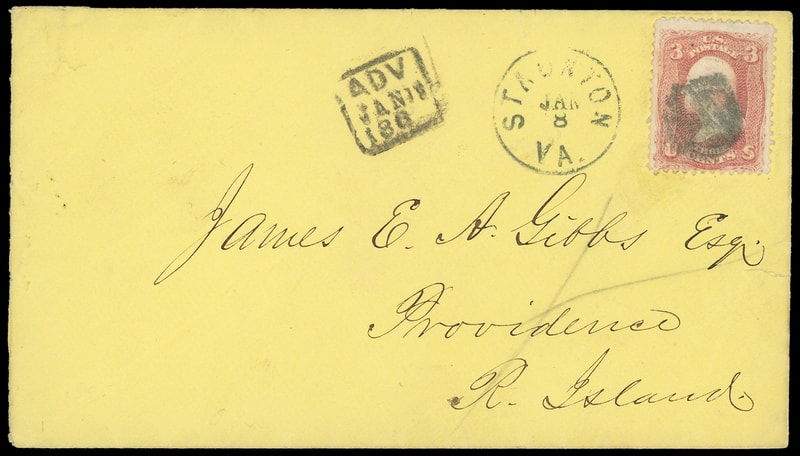 ADV
JAN
186
STAUNTON
JAN
8
VA.
3 U.S. 3
POSTAGE
U S
James E. A. Gibbs Esq.
Providence
R. Island.